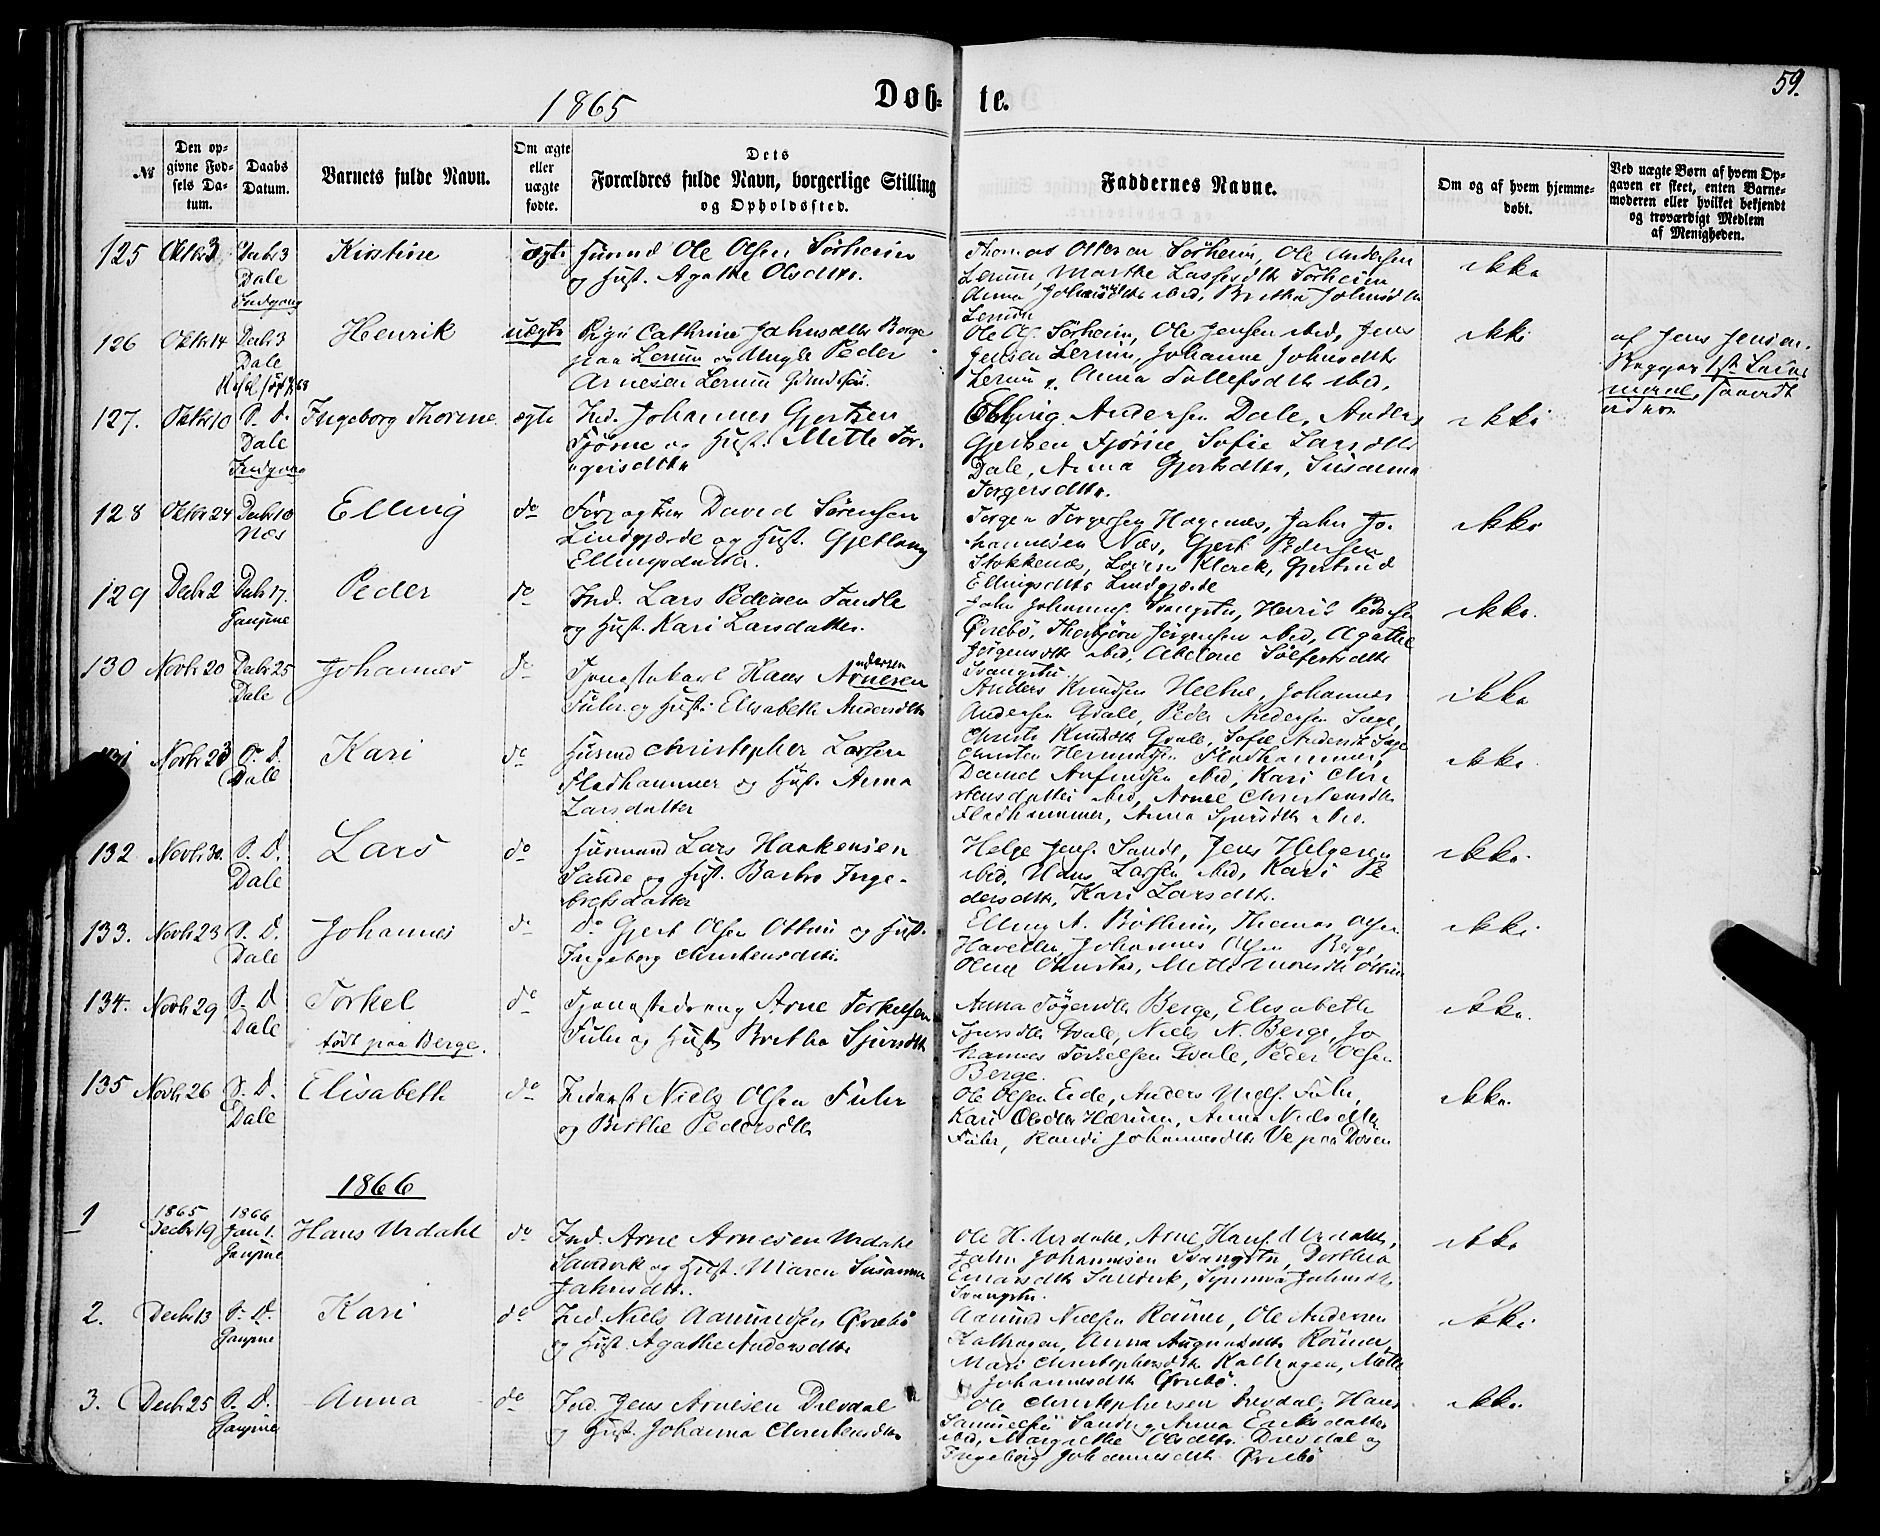 1865
Døb- te.
59.
№
Den op-
givne Fød-
sels Da-
tum.
Daabs
Datum.
Barnets fulde Navn.
Om ægte
eller
uægte
fødte.
Dets
Forældres fulde Navn, borgerlige Stilling
og Opholdssted.
Faddernes Navne.
Om og af hvem hjemme-
døbt.
Ved uægte Børn af hvem Op-
gaven er skeet, enten Barne-
moderen eller hvilket bekjendt
og troværdigt Medlem
af Menigheden.
125
Oktbr 3
Decbr 3
Dale
Kristine
ægte
Husmd Ole Olsen Sørheim
og Hust. Agathe Olsdttr.
Sørheim, Ole Andersen
Lerum, Marthe Lassesdttr Sørheim
Anna Johnsdttr ibid, Brithe Johnsdttr
Lerum
ikke
126
Oktbr 14
Decbr 3
Dale
Henrik
uægte
Pige Cathrine Johnsdttr Berge
paa Lerum og Ungk Peder
Arnesen Lerum
Ole Ols. Sørheim, Ole Jensen ibid, Jens
Jensen Lerum, Johanne Johnsdttr
Lerum, Anna Tollefsdttr ibid.
ikke
af Jens Jensen
127.
Oktbr 10
S. D.
Dale
Ingeborg Thorine
ægte
Ind. Johannes Gjertsen
Fjøsne og Hust. Mette Tor-
gersdttr
Elling Andersen Dale, Anders
Gjertsen Fjøsne, Sofie Larsdttr
Dale, Anna Gjertsdttr, Susanna
Torgersdttr.
ikke
128
Oktbr 24
Decbr 10
Næs
Elling
do
Forpagter David Sørensen
Lindgjærde og Hust. Gjertrug
Ellingsdatter.
Torger Torgersen Hagenæs, John Jo-
hannesen Næs, Gjert Pedersen
Stokkenæs, Klerck, Gjertrud
Ellingsdttr Lindgjærde
ikke
129
Decbr 2
Decbr 17.
Gaupne
Peder
do
Ind. Lars Pedersen Sandle
og Hust. Kari Larsdatter.
John Johannes. Svangstu, Henrik Pedersen
Øvrebø, Thorbjørn Jørgensen ibid, Agathe
Jørgensdttr ibid, Abelone Sølfestsdttr
Svangstu
ikke.
130
Novbr 20
Decbr 25
Dale
Johannes
do
Tjenestekarl Hans Arnesen
ndersen
Fuhr og Hust. Elisabeth Andersdttr
Anders Knudsen Heltne, Johannes
Andersen Qvale, Peder Andersen Sage,
Knudsdttr Qvale, Sofie Andersdttr Sage
ikke
Novbr 23
S. D.
Dale
Kari
do
Husmd Christopher Larsen
Fladhammer og Hust. Anna
Larsdatter
Christen Hermundsen Fladhammer,
Daniel Anfindsen ibid, Kari Chri-
stensdatter ibid, Arne Christensdttr
Fladhammer, Anna Sjursdttr ibid.
ikke.
132
Novbr 30.
S. D.
Dale
Lars
do
Husmand Lars Haakensen
Sande og Hust. Barbro Inge-
bretsdatter
Helge Jens. Sande, Jens Helgesen
ibid, Hans Larsen ibid, Kari Pe-
dersdttr, Kari Larsdttr.
ikke.
133.
Novbr 23
S. D.
Dale
Johannes
do
do Gjert Olsen Ottum og Hust.
Ingeborg Christensdttr.
Elling A. Bøthun, Thomas Olsen
Johannes Olsen Berge
Mette Monsdttr Ottum
ikke.
134.
Novbr 29
S. D
Dale
Torkel
født paa Berge.
do
Tjenestedreng Arne Torkelsen
Fuhr og Hust. Bretha Sjursdttr
Anna Berge, Elisabeth
Sjursdttr Qvale, Niels N. Berge, Jo-
hannes Torkelsen Qvale, Peder Olsen
Berge.
ikke.
135
Novbr 26
S. D.
Dale
Elisabeth
do
Niels Olsen Fuhr
og Birthe Pedersdttr
Ole Olsen Eide, Anders Niels. Fuhr,
Kari Olsdttr Hærum, Anna Nielsdttr
Fuhr, Randi Johannesdttr Ve paa Dosen
ikke.
1866
1
1865
Decbr 19
1866
Jan 1.
Gaupne
Hans Urdahl
do
Ind. Arne Arnesen Urdahl
Sandvik og Hust. Maren Susanna
Johnsdttr.
Ole H. Urdahl, Arne Hans. Urdahl,
John Johannesen Svangstu, Dorthea
Einarsdttr Sandvik, Synneva Johnsdttr
Svangstu.
ikke
2.
Decbr 13
S. D.
Gaupne
Kari
do
Ind. Niels Aamundsen Øvrebø
og Hust. Agathe Andersdttr
Aamund Nielsen Røsnes, Ole Andersen
Kalhagen, Anna Aamundsdttr Røsnes,
Mari Christophersdttr Kalhagen, Mette
Johannesdttr Øvrebø.
ikke
3.
Decbr 25
S. D.
Gaupne
Anna
do
Ind. Jens Arnesen Drevdal
og Hust. Johanna Christensdttr
Ole Christophersen Drevdal, Hans
Samuelsen Sandvig, Anna Eriksdatter
ibid, Margrethe Olsdttr. Drevdal og
Ingeborg Johannesdttr Øvrebø
ikke.